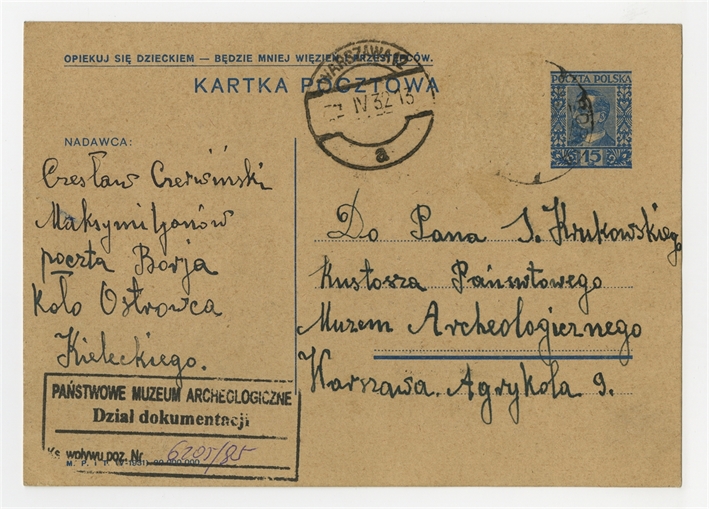 OPIEKUJ SIĘ DZIECKIEM — BĘDZIE MNIEJ WIĘZIEŃ I PRZESTĘPCÓW.
KARTKA POCZTOWA
WARSZAWA 2
IV 32 13
a
POCZTA POLSKA
15
NADAWCA:
Czesław Czerwiński
Maksymiljanów
poczta Borja
koło Ostrowca
Kieleckiego.
Do Pana S. Krukowskiego
Kustosza Państwowego
Muzeum Archeologicznego
Warszawa. Agrykola 9.
PAŃSTWOWE MUZEUM ARCHEOLOGICZNE
Dział dokumentacji
Ks. wpływu poz. Nr 6205/85